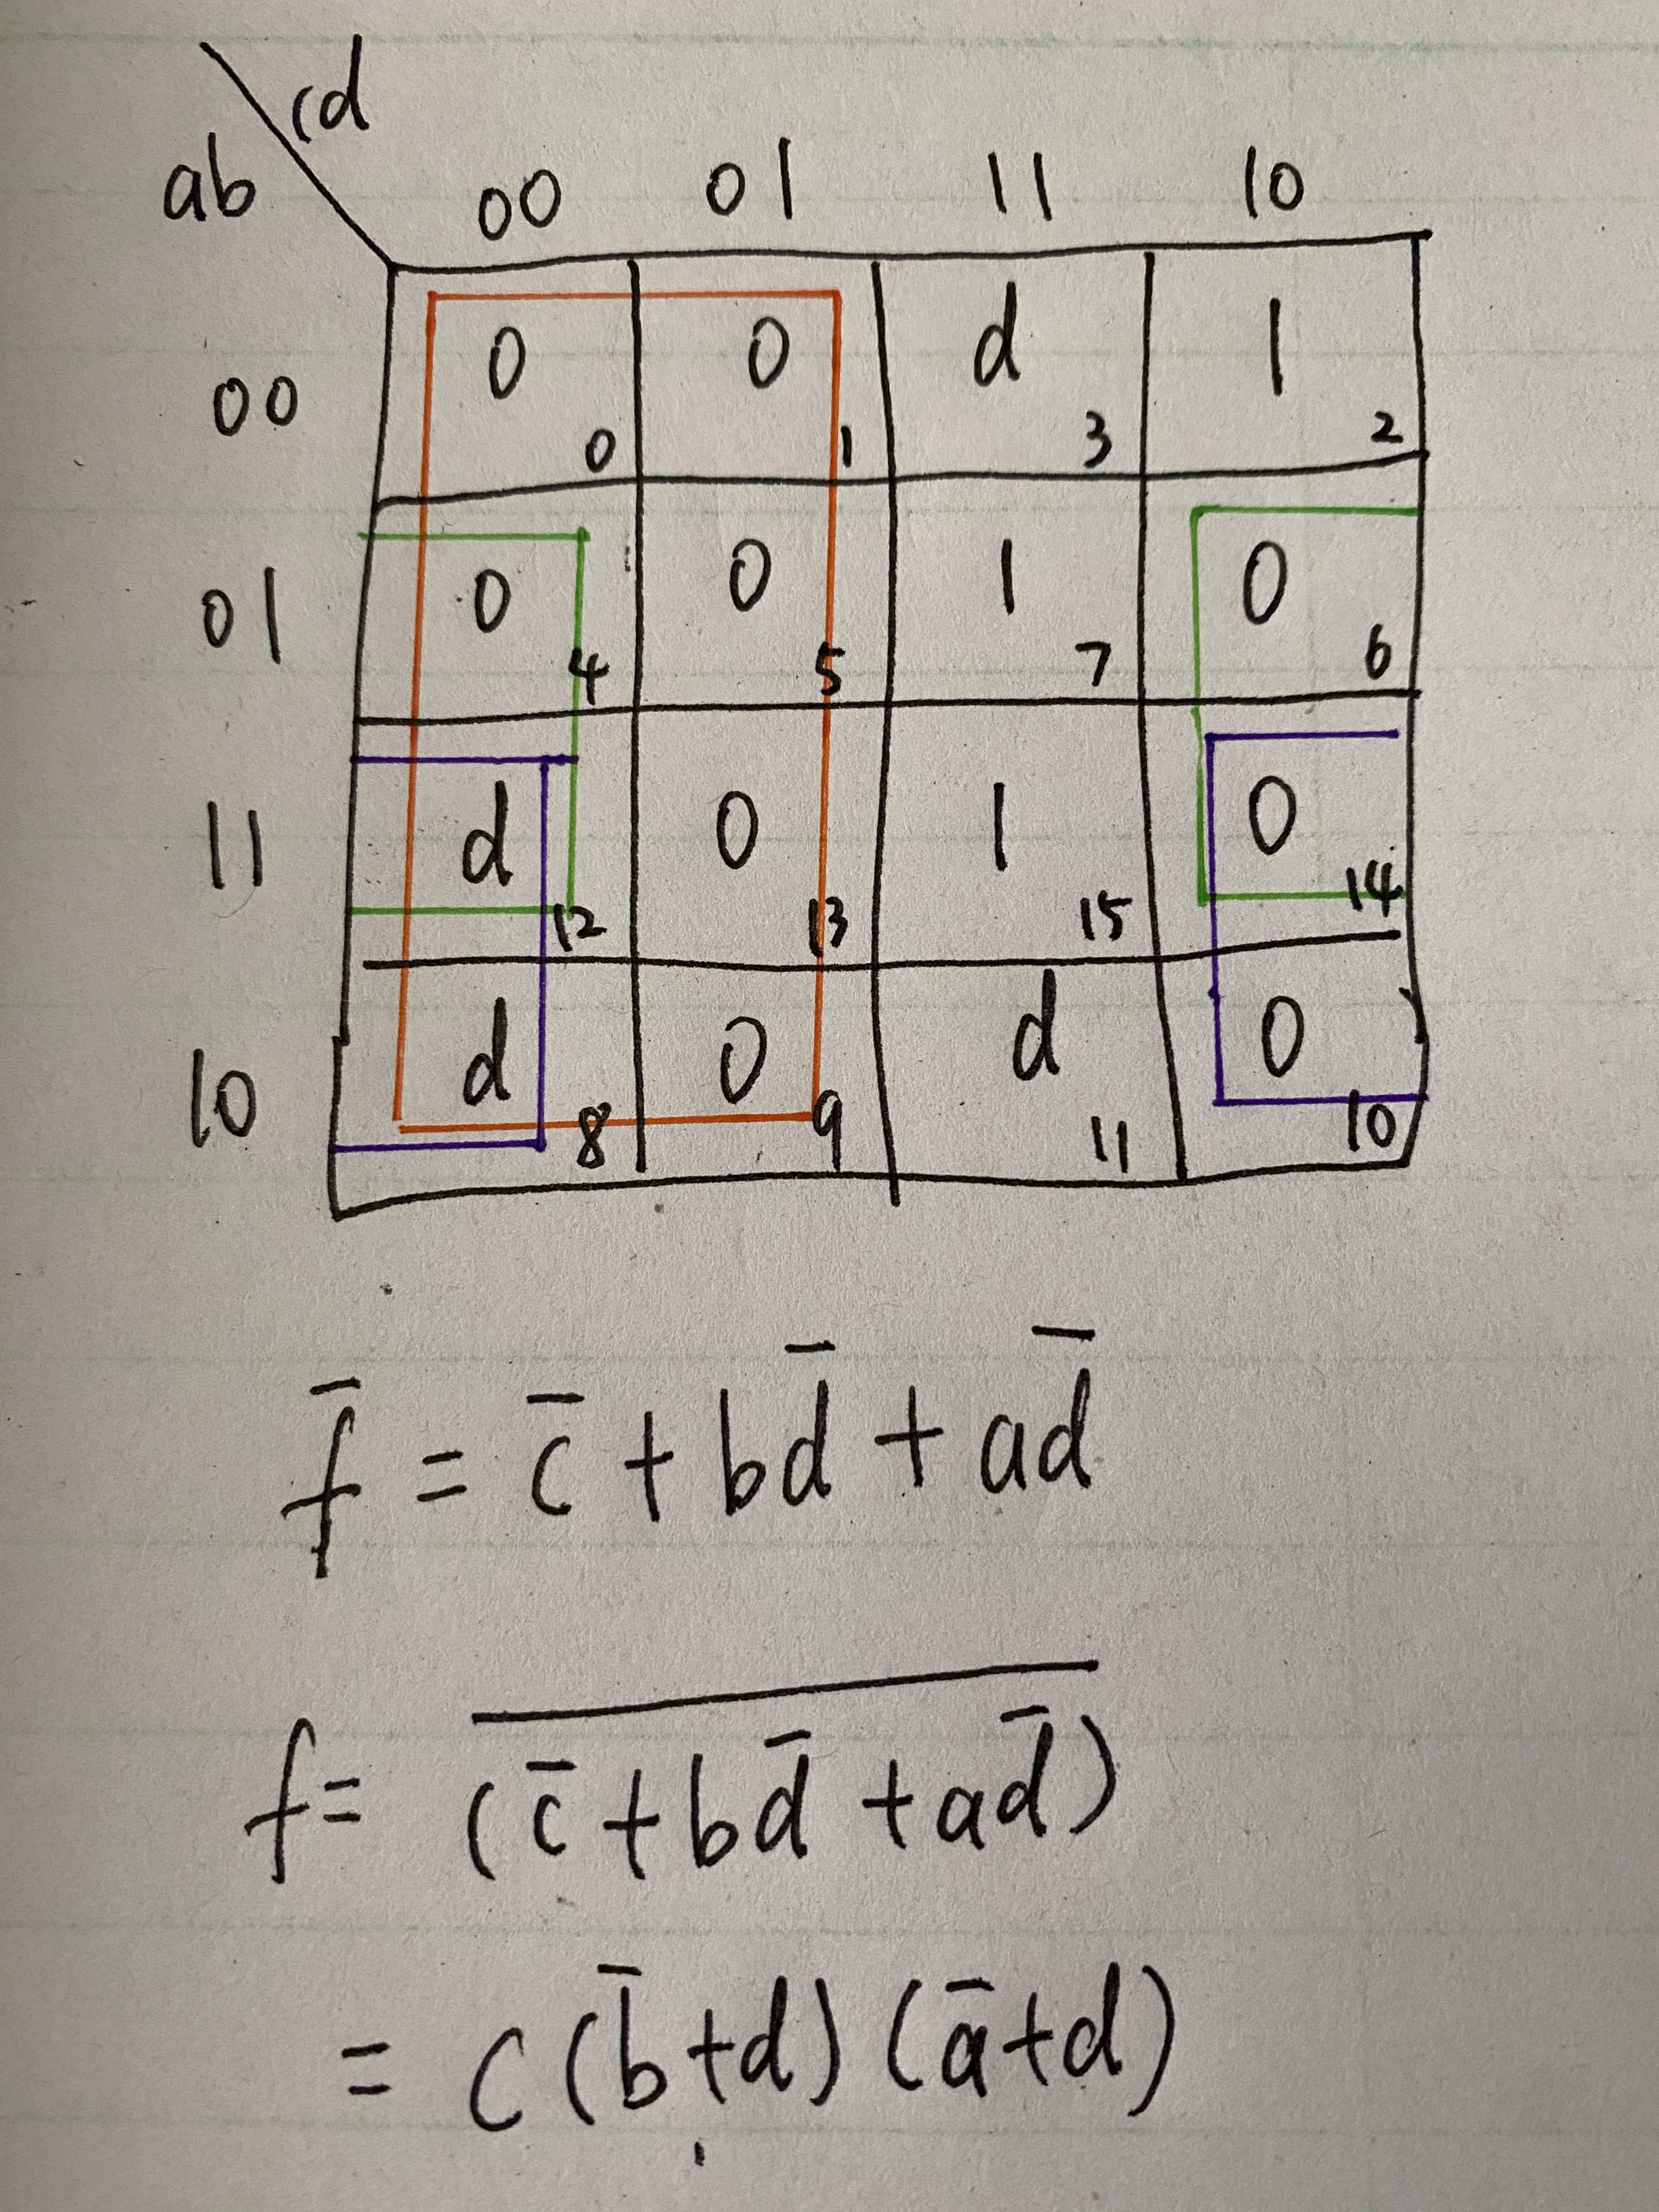 cd
ab 00 01 11 10
00 0 0 d 1
0 1 3 2
01 0 0 1 0
4 5 7 6
11 d 0 1 0
12 13 15 14
10 d 0 d 0
8 9 11 10
f̄ = c̄ + bd̄ + ad̄
f = \overline{(c̄ + bd̄ + ad̄)}
= c(b̄+d)(ā+d)